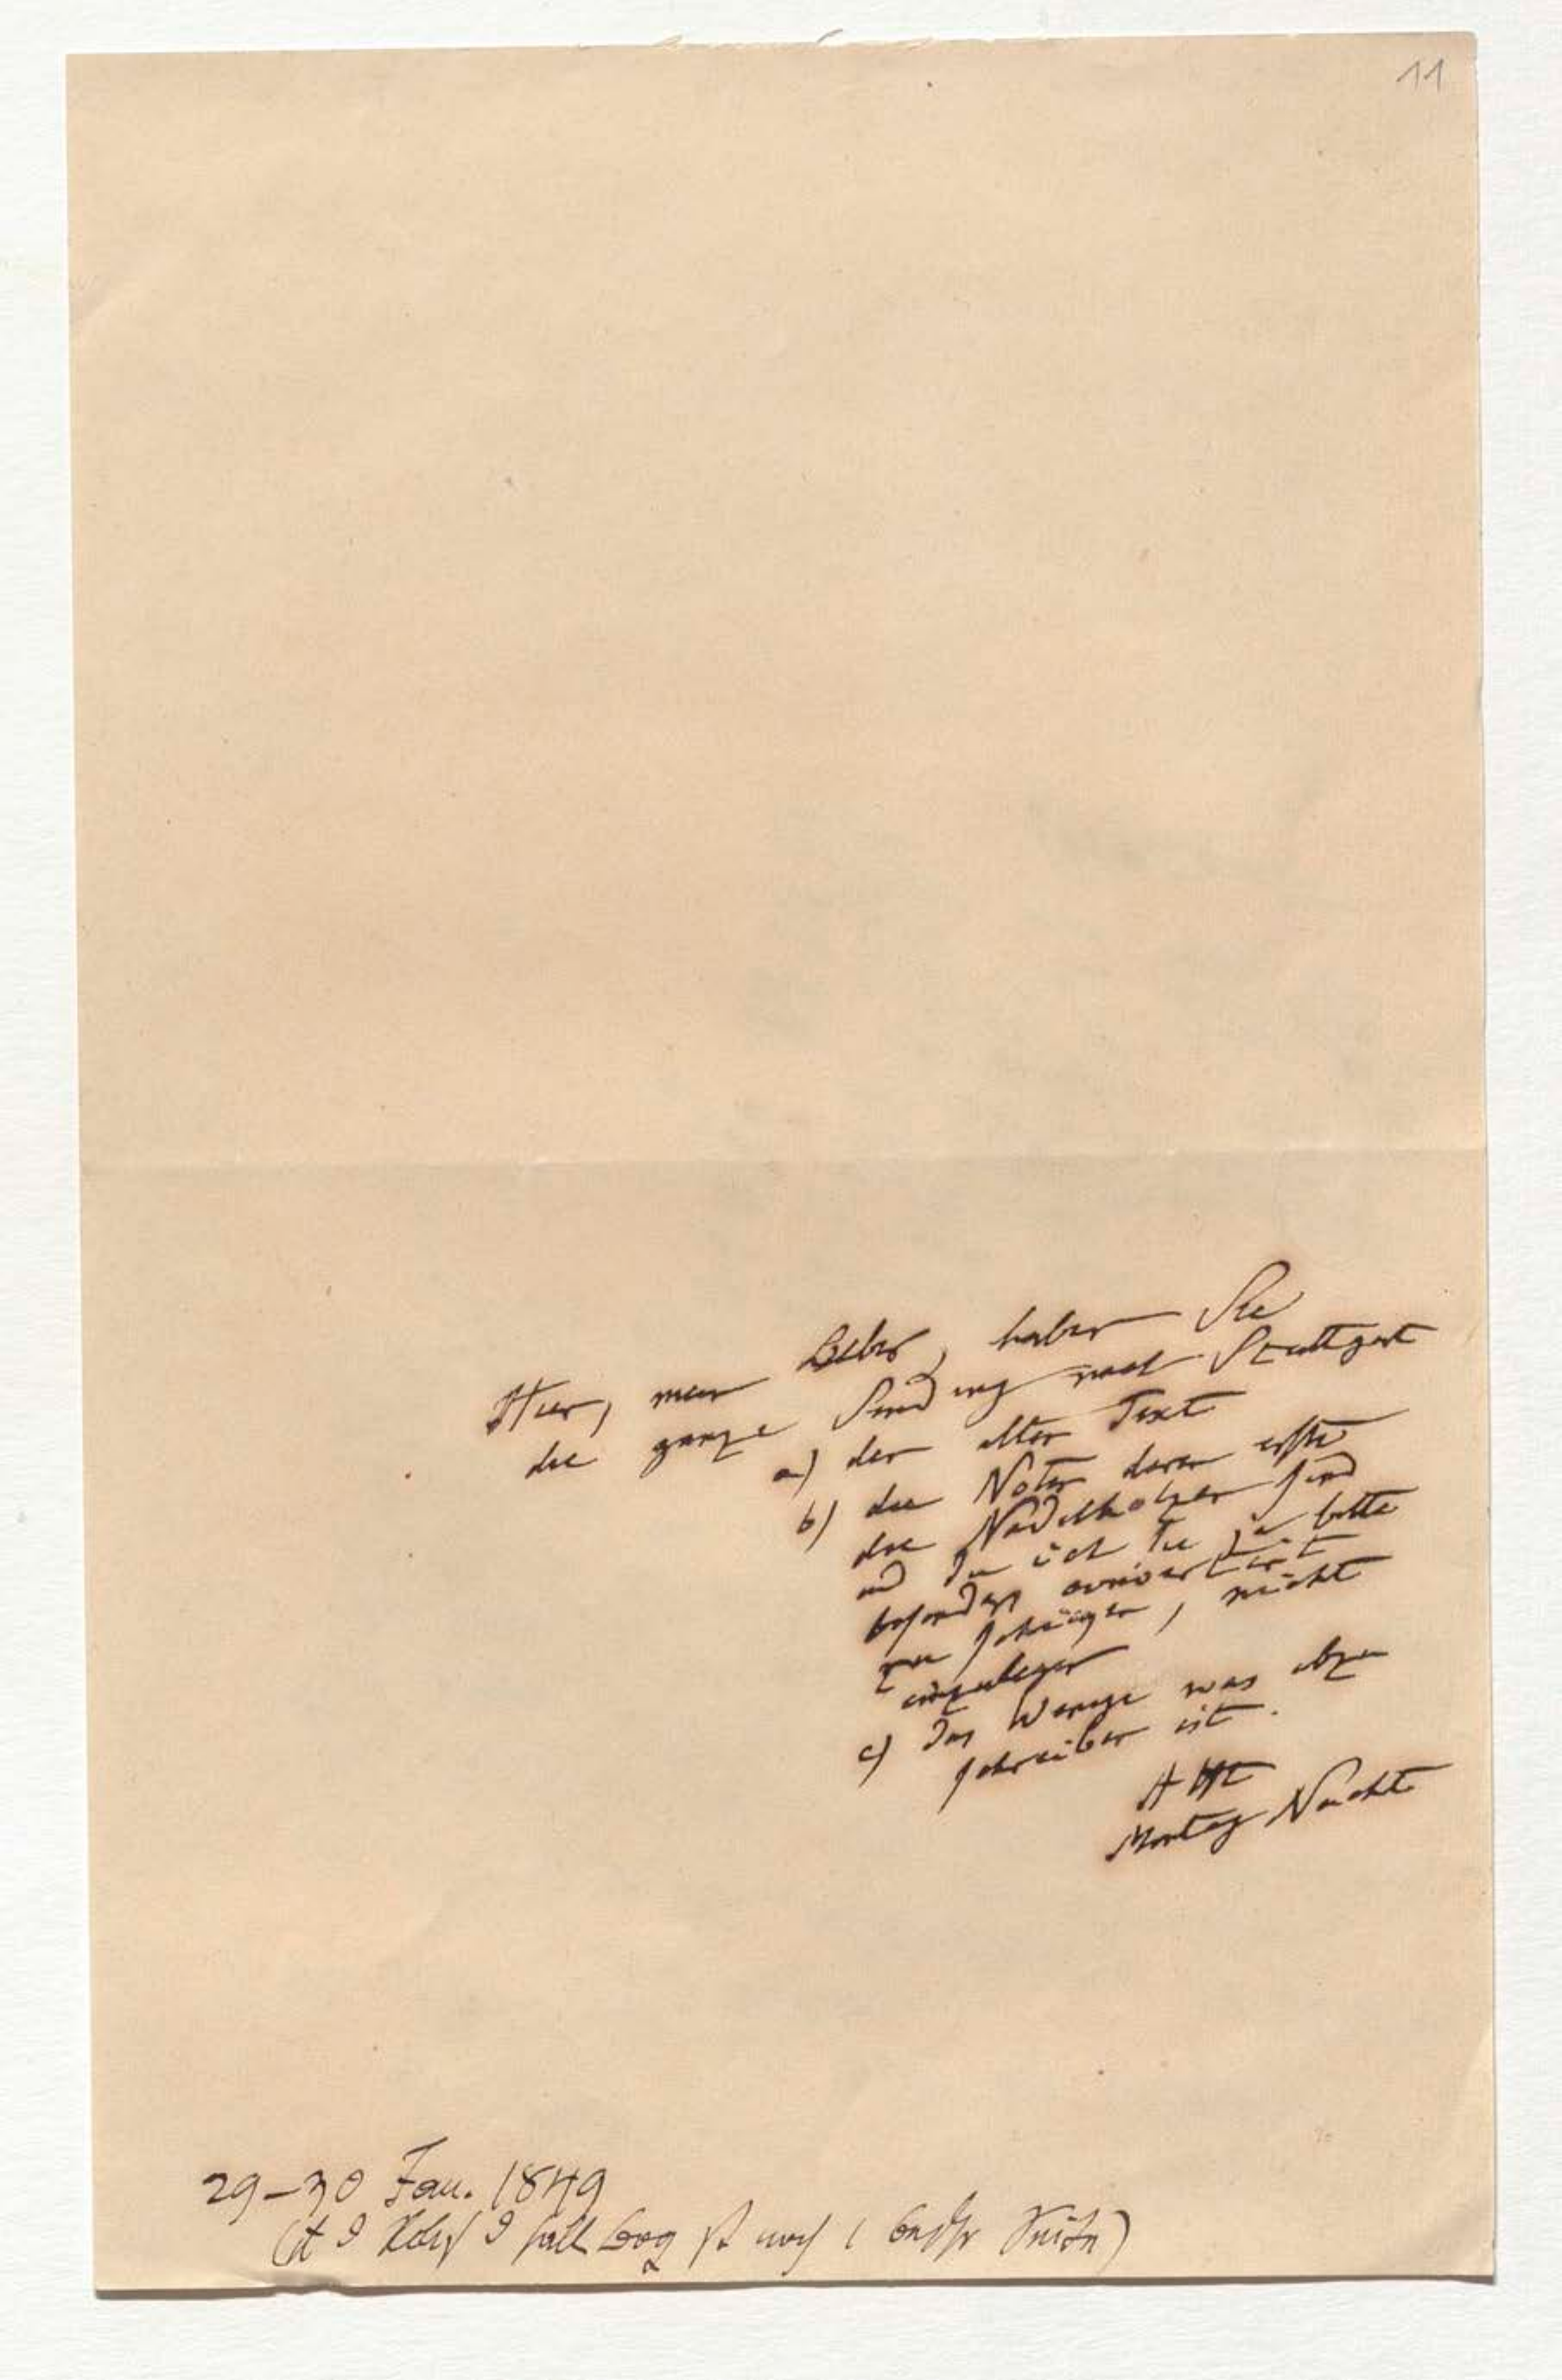 11
Hier, mein Lieber, haben Sie
die ganze Sendung nach Stuttgart
a) den alten Text
b) die Noten deren erste
die Nadelhölzer sind
und die ich Sie ja bitte
besonders
zu schicken, nicht
einzulegen
c) das Wenige was abzu
schreiben ist.
AHt
Montag Nachts
29–30 Jan. 1849